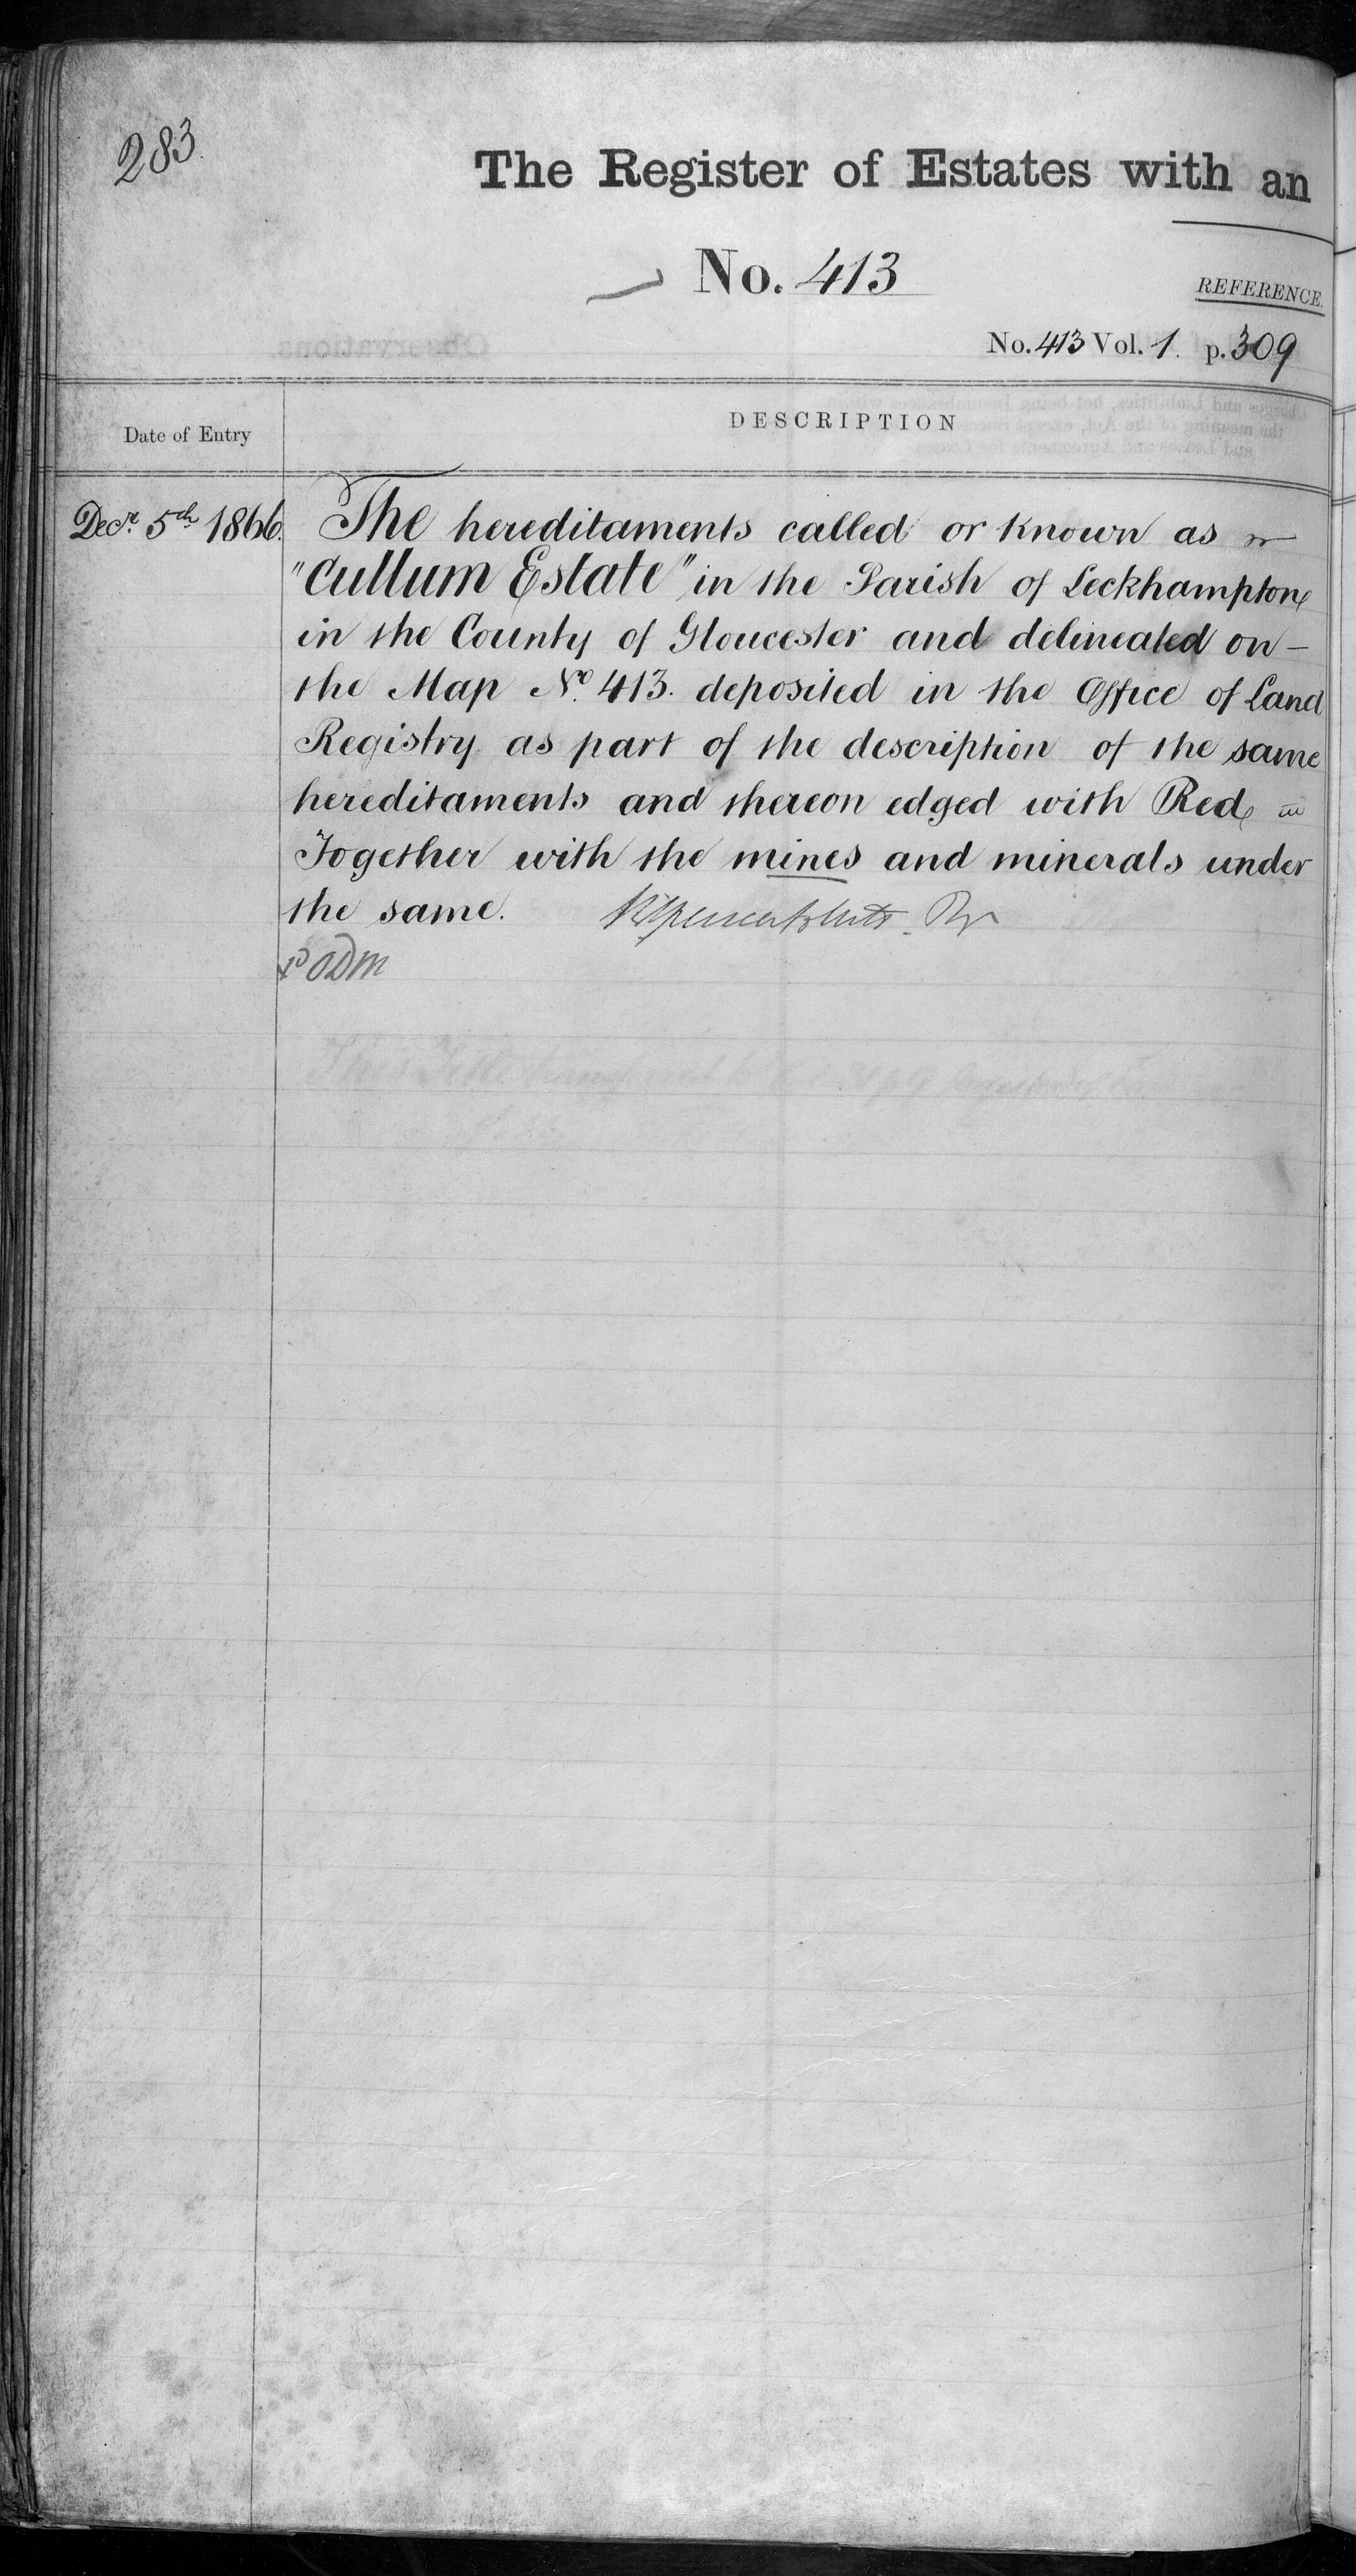 283.
The Register of Estates with an
No. 413
REFERENCE.
No. 413 Vol. 1. p. 309
Date of Entry
DESCRIPTION
Decr. 5th 1866. The hereditaments called or known as
"Cullum Estate" in the Parish of Leckhampton
in the County of Gloucester and delineated on –
the Map No. 413. deposited in the Office of Land
Registry as part of the description of the same
hereditaments and thereon edged with Red
Together with the mines and minerals under
the same.